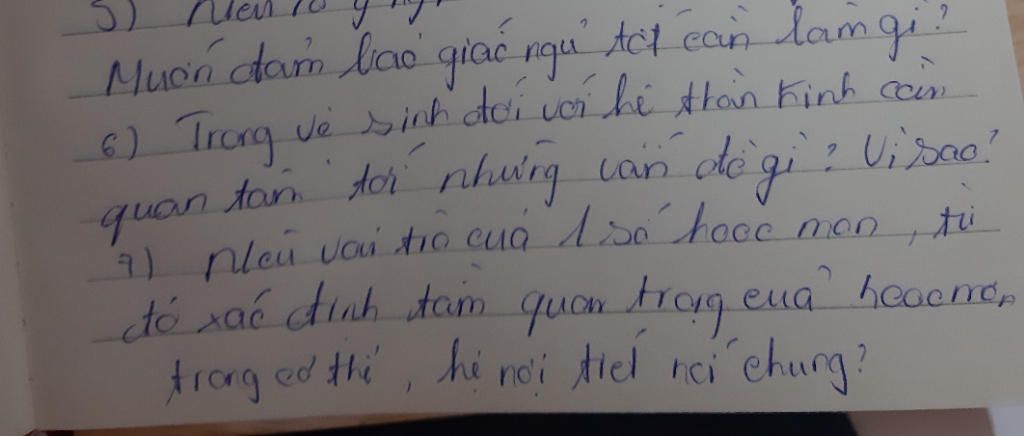 5) Nêu rõ ý ng
Muốn đảm bảo giấc ngủ tốt cần làm gì?
6) Trong vệ sinh đối với hệ thần kinh cần
quan tâm tới những vấn đề gì? Vì sao?
7) Nêu vai trò của 1 số hooc mon, từ
đó xác định tầm quan trọng của hoocmon
trong cơ thể, hệ nội tiết nói chung?